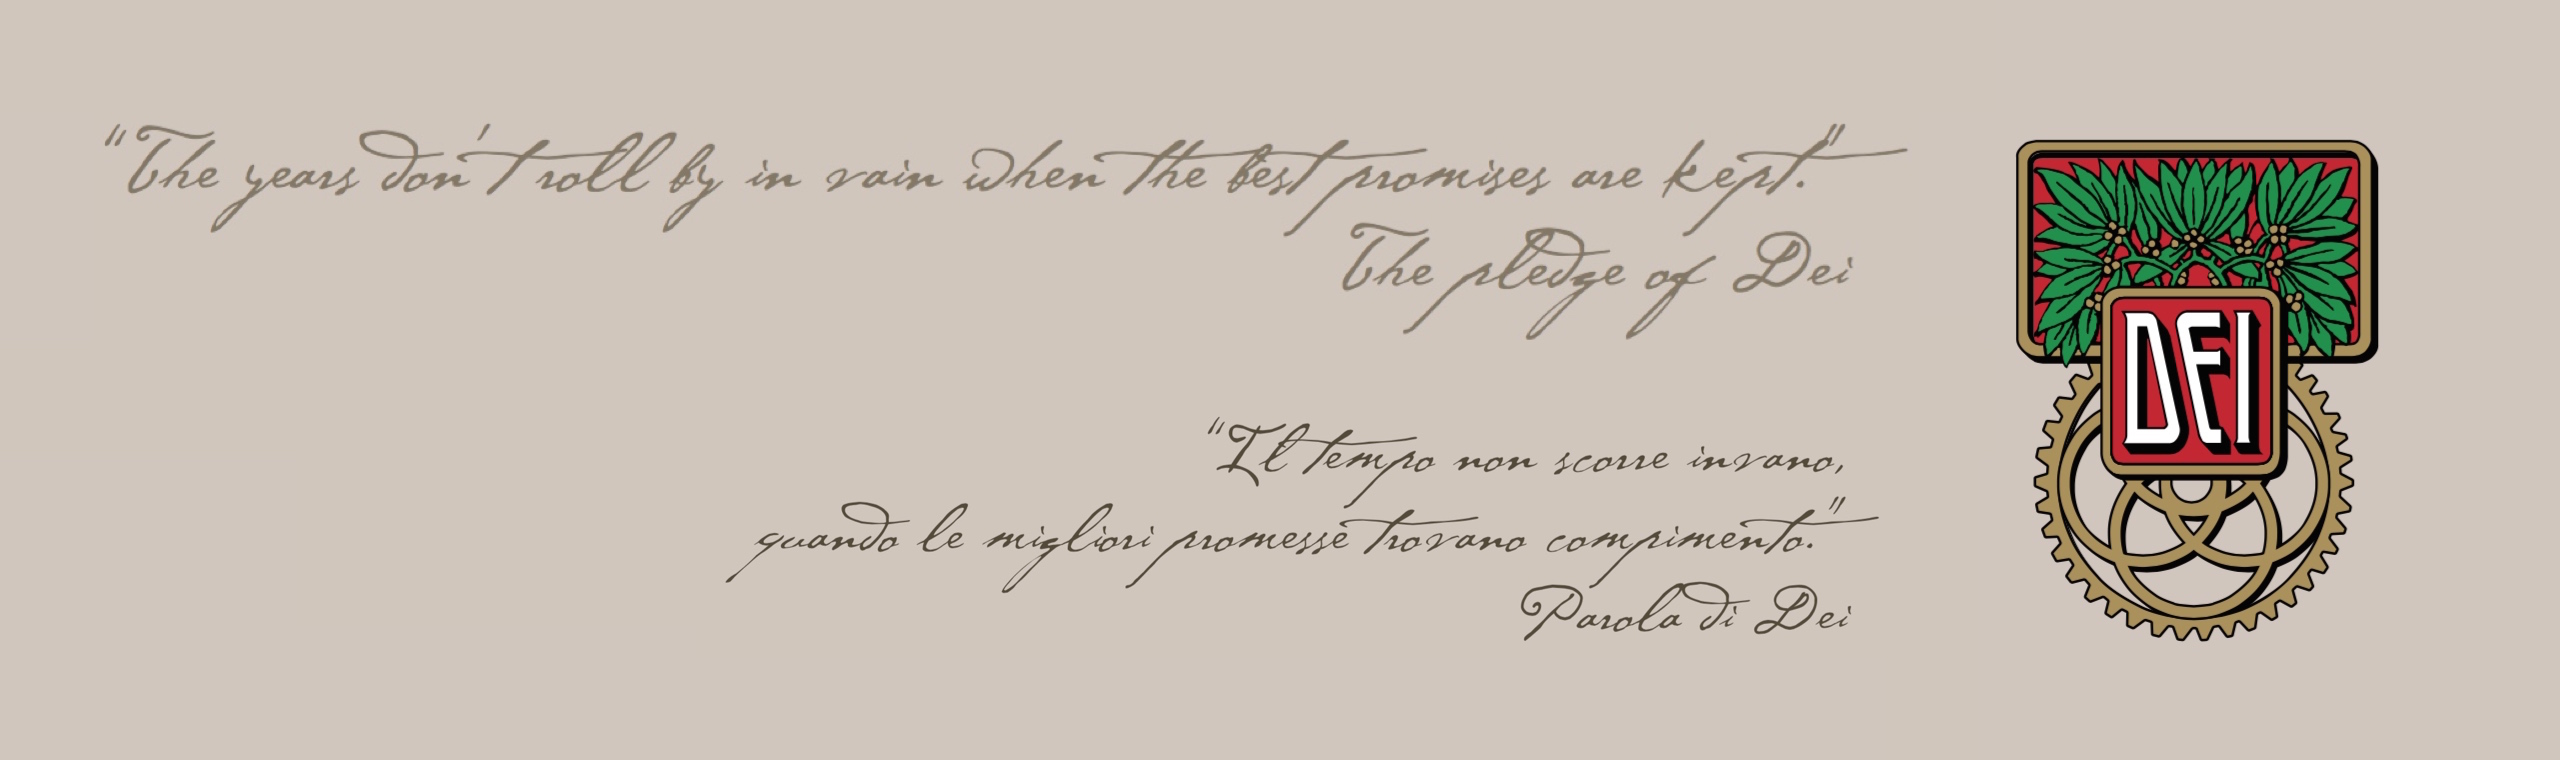 "The years don't roll by in vain when the best promises are kept."
The pledge of Dei
"Il tempo non scorre invano,
quando le migliori promesse trovano compimento."
Parola di Dei
DEI